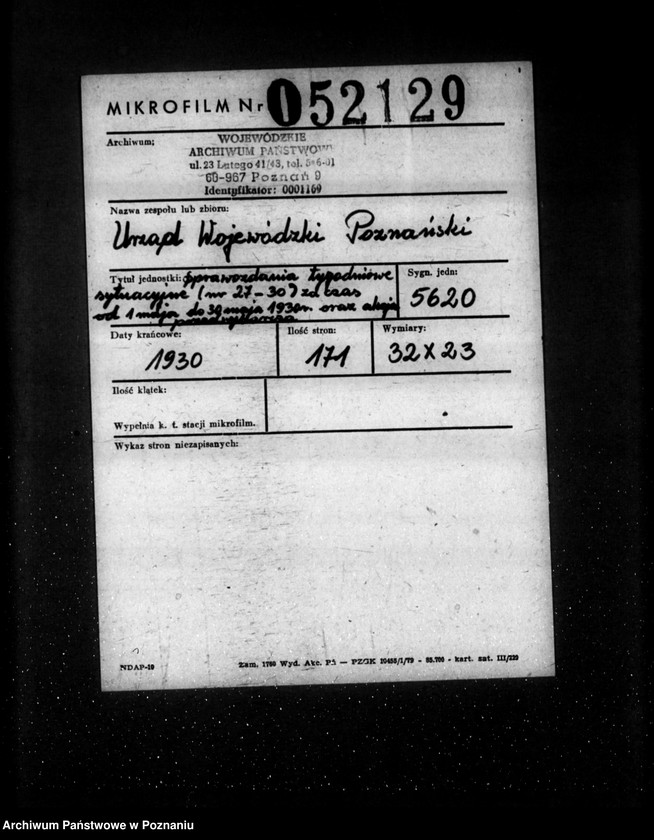 MIKROFILM Nr 052129
Archiwum;
WOJEWÓDZKIE
ARCHIWUM PAŃSTWOWE
ul. 23 Lutego 41/43, tel.
60-967 Poznań 9
Identyfikator: 0001169
Nazwa zespołu lub zbioru:
Urząd Wojewódzki Poznański
Tytuł jednostki: Sprawozdania tygodniowe
sytuacyjne (nr 27-30) za czas
od 1 maja do 30 maja 1930r. oraz akcja
Sygn. jedn:
5620
Daty krańcowe:
1930
Ilość stron:
171
Wymiary:
32 x 23
Ilość klatek:
Wypełnia k. t. stacji mikrofilm.
Wykaz stron niezapisanych:
NDAP-10
Zam. 1760 Wyd. Akc. — PZGK - kart. sat. III/220
Archiwum Państwowe w Poznaniu